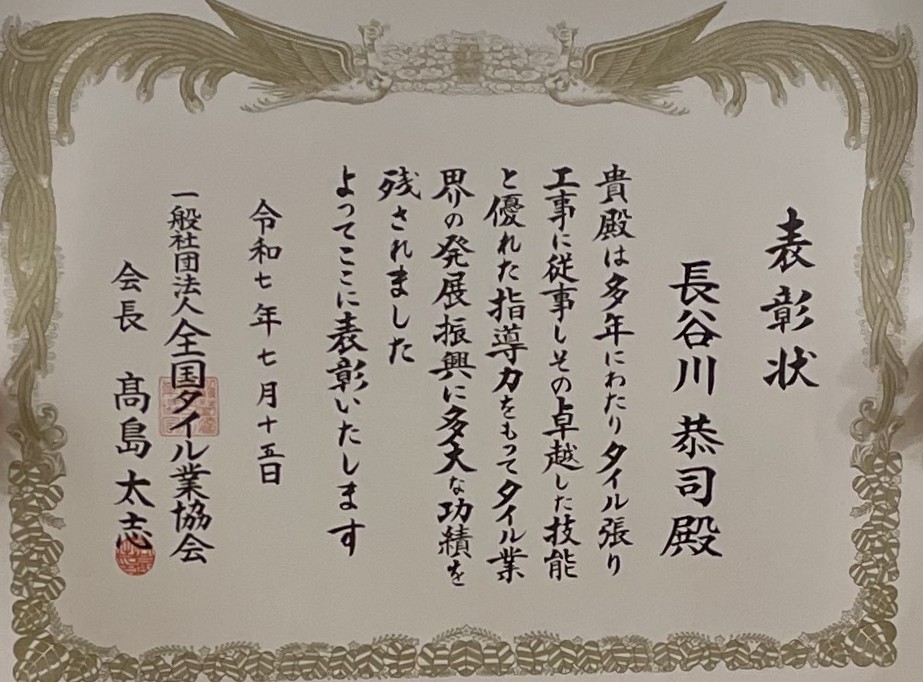 表彰状
長谷川 恭司 殿
貴殿は多年にわたりタイル張り
工事に従事しその卓越した技能
と優れた指導力をもってタイル業
界の発展振興に多大な功績を
残されました
よってここに表彰いたします
令和七年七月十五日
一般社団法人全国タイル業協会
会長 髙島 太志